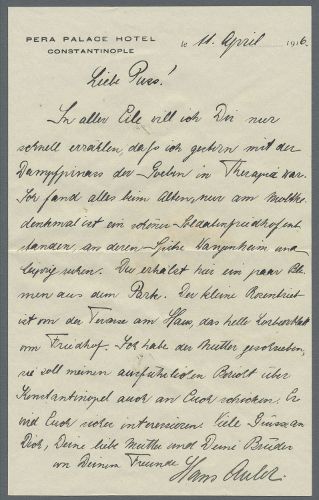 PERA PALACE HOTEL
CONSTANTINOPLE
le 11. April 1916.
Liebe Puss!
In aller Eile will ich Dir nur
schnell erzählen, daß ich gestern mit der
Dampfpinass der Goeben in Therapia war.
Ich fand alles beim Alten, nur am Moltke
denkmal ist ein schöner Soldatenfriedhof ent
standen, an deren Spitze Wangenheim und
Leipzig ruhen. Du erhälst hier ein paar Blu
men aus dem Park. Der kleine Rosentrieb
ist von der Terasse am Haus, das helle Lorbeerblatt
vom Friedhof. Ich habe der Mutter geschrieben,
sie soll meinen ausführlichen Bericht über
Konstantinopel auch an Euch schicken. Er
wird Euch sicher interessieren. Viele Grüsse an
Dich, Deine liebe Mutter und Deine Brüder
von Deinem Freunde
Hans